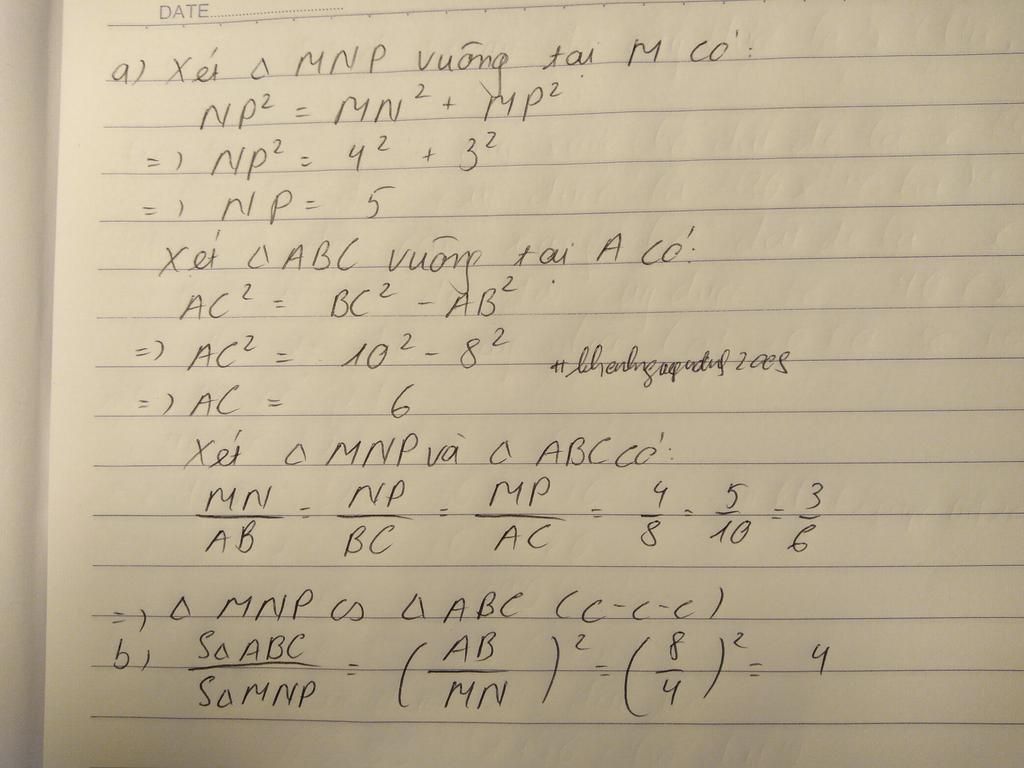 DATE
a) Xét Δ MNP vuông tại M có:
NP² = MN² + MP²
=) NP² = 4² + 3²
=) NP = 5
Xét Δ ABC vuông tại A có:
AC² = BC² - AB²
=) AC² = 10² - 8²
=) AC = 6
Xét Δ MNP và Δ ABC có:
MN/AB = NP/BC = MP/AC = 4/8 = 5/10 = 3/6
=) Δ MNP ∽ Δ ABC (c-c-c)
b) SΔABC/SΔMNP = (AB/MN)² = (8/4)² = 4